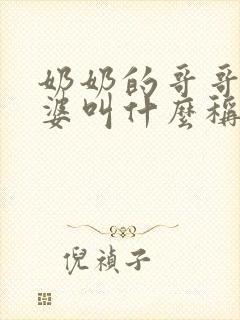 奶奶的哥哥
婆叫什麼稱
倪禎子